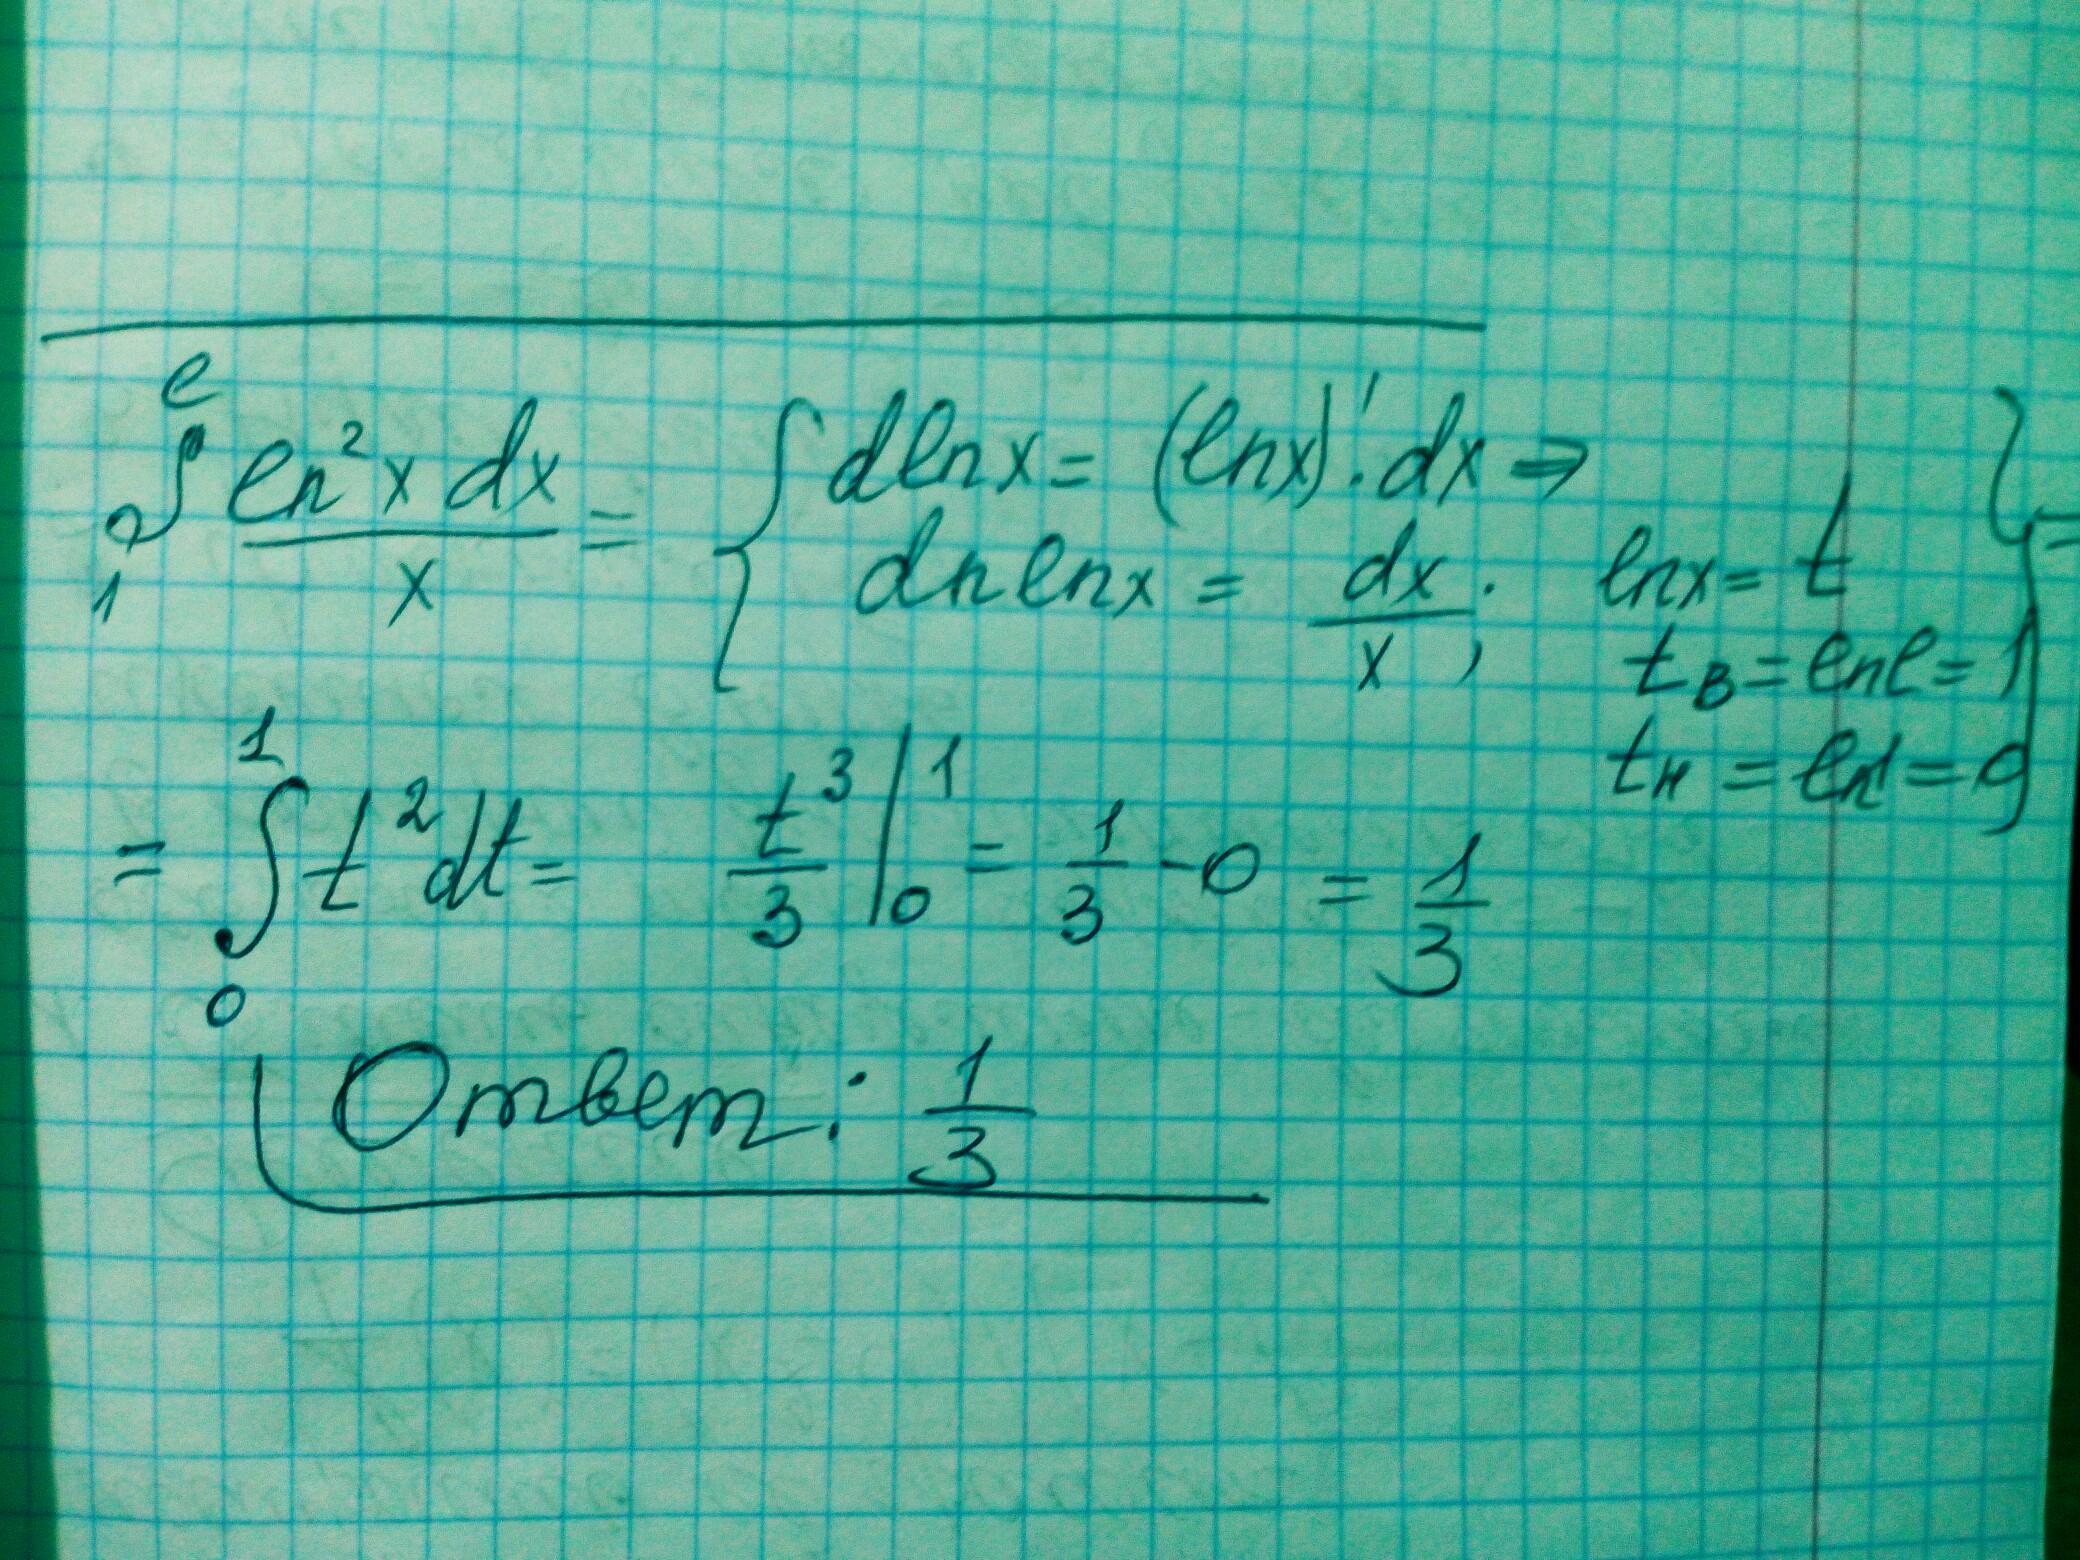 ∫₁ᵉ ln²x dx / x = { dlnx = (lnx)' · dx ⇒
dnlnx = dx/x ; lnx = t } =
tв = lne = 1
tн = ln1 = 0
= ∫₀¹ t² dt = t³/3 |₀¹ = 1/3 - 0 = 1/3
Ответ: 1/3